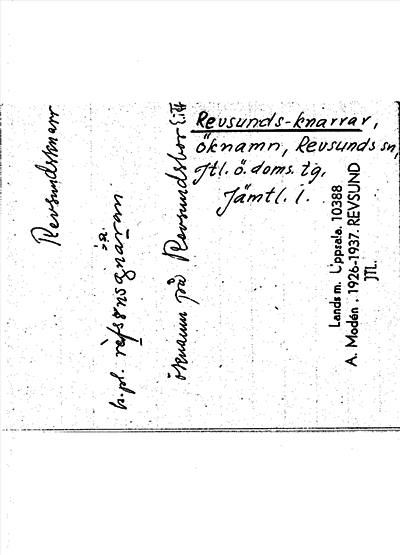 Revsunds-knarrar,
öknamn, Revsunds sn,
Jtl. ö. doms. tg.
Jämtl. l.
Revsundsknarr
b. pl.
öknamn på Revsundsbor
Landsm. Uppsala. 10388
A. Modén. 1926-1937. REVSUND
JTL.